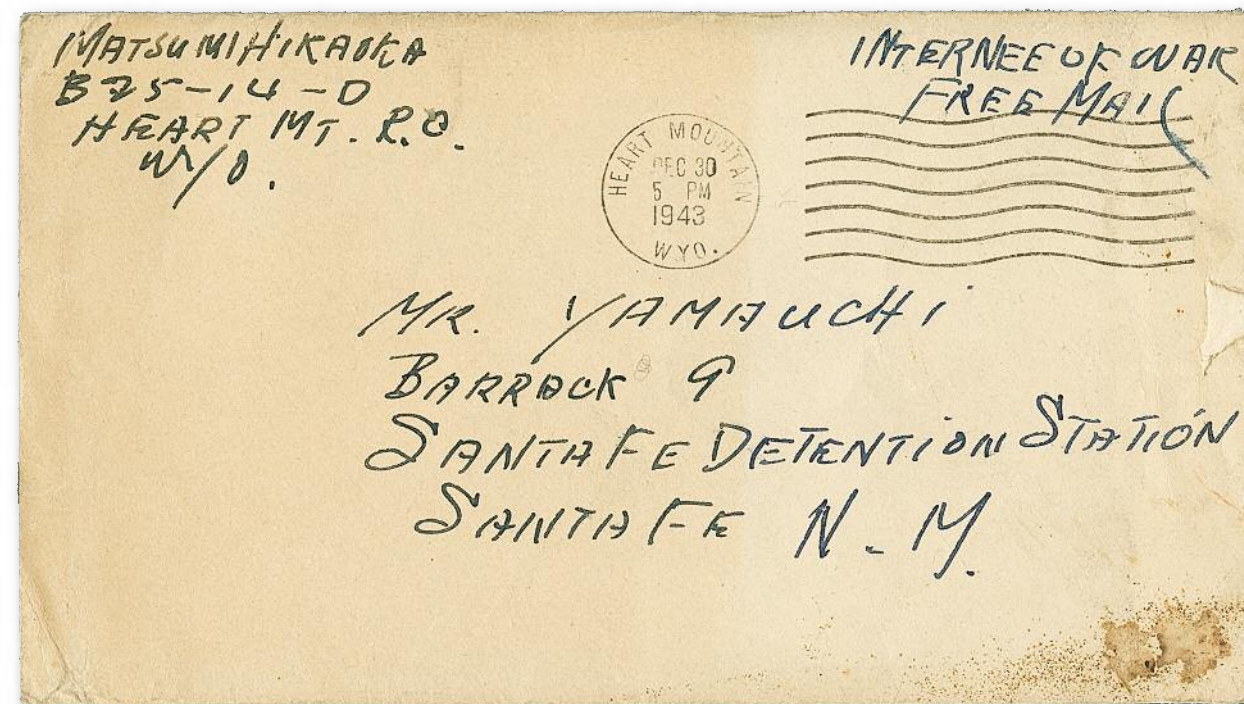 MATSUMI HIKAOKA
B25-14-D
HEART MT. R.C.
WYO.
INTERNEE OF WAR
FREE MAIL
HEART MOUNTAIN
DEC 30
5 PM
1943
WYO.
MR. YAMAUCHI
BARRACK 9
SANTA FE DETENTION STATION
SANTA FE N.M.